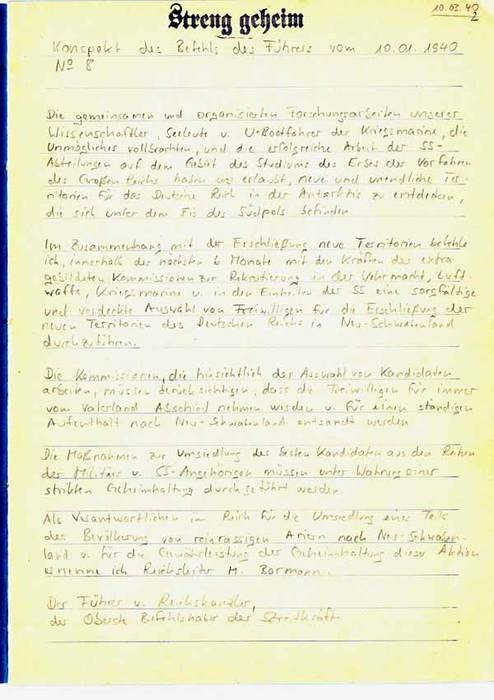 10.02.40
2
Streng geheim
Konspekt des Befehls des Führers vom 10.01.1940
№ 8
Die gemeinsamen und organisierten Forschungsarbeiten unserer
Wissenschaftler, Seeleute u. U-Bootfahrer der Kriegsmarine, die
Unmögliches vollbrachten, und die erfolgreiche Arbeit der SS-
Abteilungen auf dem Gebiet des Studiums des Erbes der Vorfahren
des Großen Reichs haben uns erlaubt, neue und unendliche Ter-
ritorien für das Deutsche Reich in der Antarktis zu entdecken,
die sich unter dem Eis des Südpols befinden
Im Zusammenhang mit der Erschließung neue Territorien befehle
ich, innerhalb der nächsten 6 Monate mit den Kräften der extra
gebildeten Kommissionen zur Rekrutierung in der Wehrmacht, Luft-
waffe, Kriegsmarine u. in den Einheiten der SS eine sorgfältige
und verdeckte Auswahl von Freiwilligen für die Erschließung der
neuen Territorien des Deutschen Reichs in Neu-Schwabenland
durchzuführen.
Die Kommissionen, die hinsichtlich der Auswahl von Kandidaten
arbeiten, müssen berücksichtigen, dass die Freiwilligen für immer
vom Vaterland Abschied nehmen werden u. für einen ständigen
Aufenthalt nach Neu-Schwabenland entsandt werden
Die Maßnahmen zur Umsiedlung der besten Kandidaten aus den Reihen
der Militärs u. SS-Angehörigen müssen unter Wahrung einer
strikten Geheimhaltung durchgeführt werden.
Als Verantwortlichen im Reich für die Umsiedlung eines Teils
der Bevölkerung von reinrassigen Ariern nach Neu-Schwaben-
land u. für die Gewährleistung der Geheimhaltung dieser Aktion
ernenne ich Reichsleiter M. Bormann.
Der Führer u. Reichskanzler,
der Oberste Befehlshaber der Streitkräfte